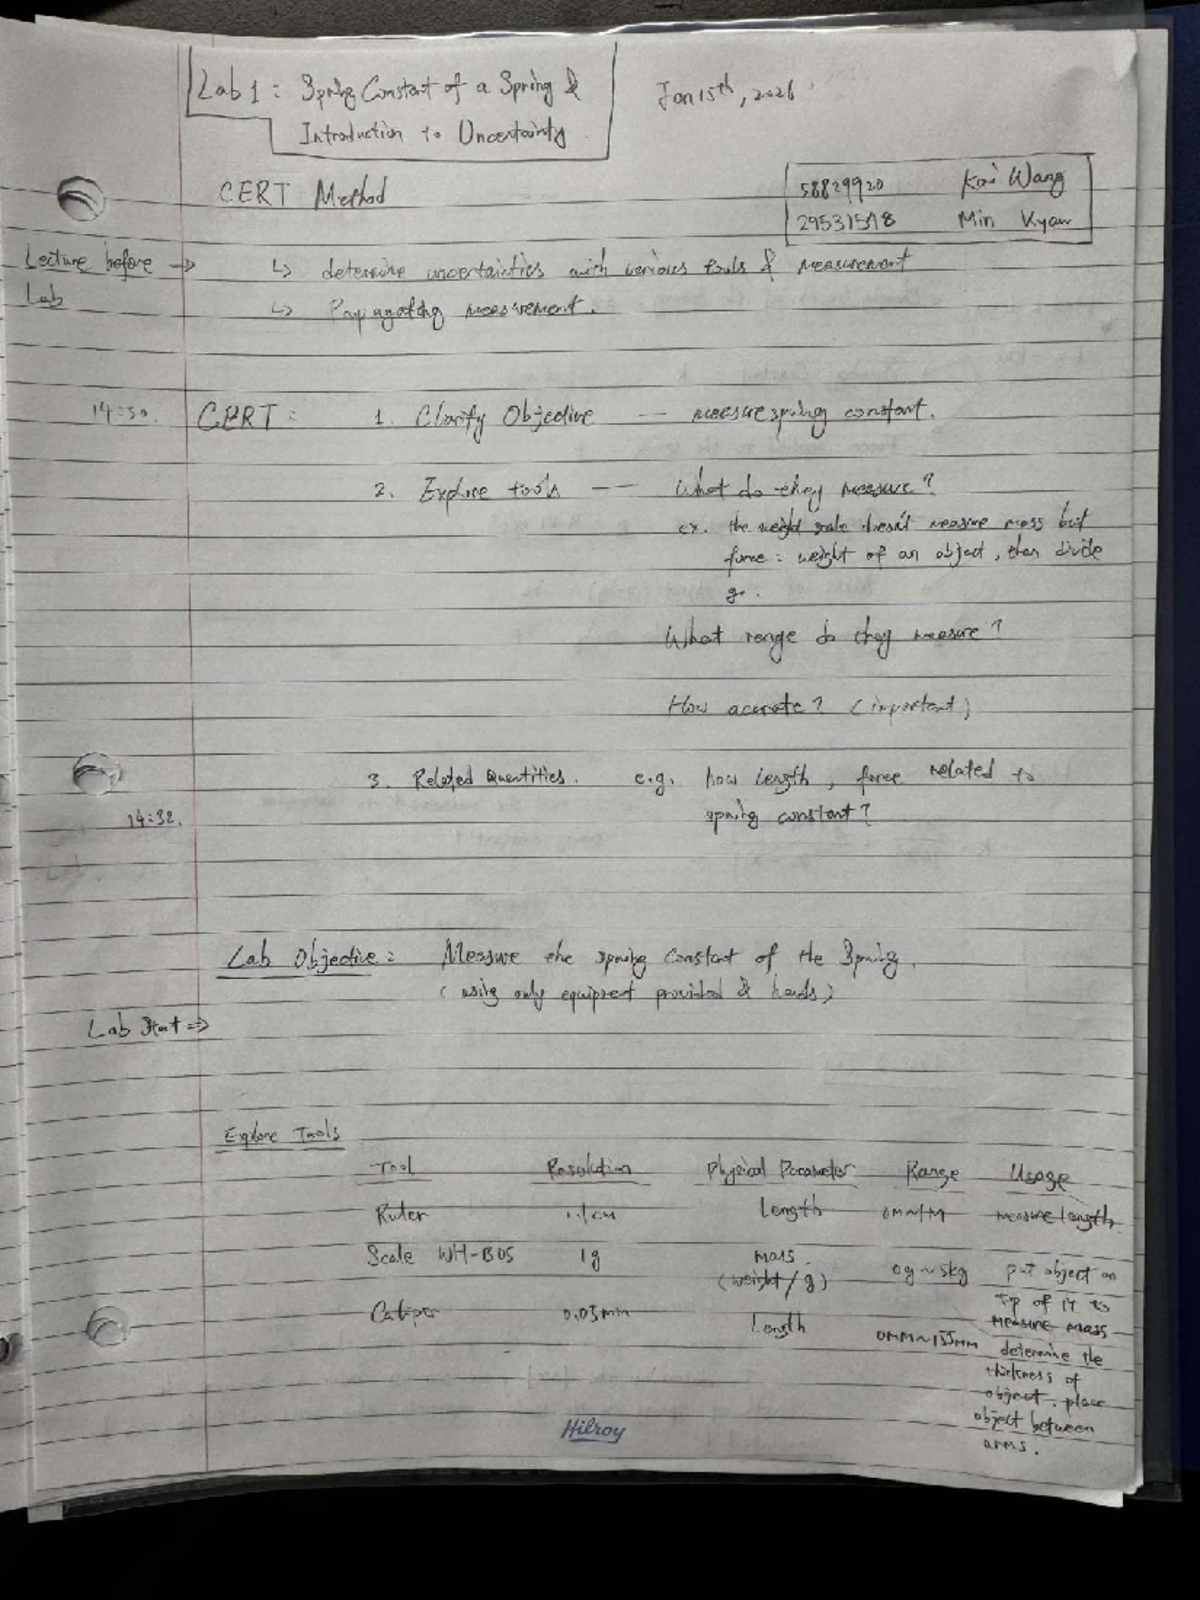 Lab 1 : Spring Constant of a Spring &
Introduction to Uncertainty
Jan 15th, 2026
CERT Method
58829920 Kai Wang
29531548 Min Kyaw
Lecture before →
Lab
↳ determine uncertainties with various tools & measurement
↳ Propagating measurement.
14:30. CERT : 1. Clarify Objective — measure spring constant.
2. Explore tools —— What do they measure?
ex. the weight scale doesn't measure mass but
force : weight of an object, then divide
g.
What range do they measure?
How acurate? (important)
3. Related Quantities. e.g. how length, force related to
14:32. spring constant?
Lab Objective : Measure the spring constant of the Spring.
(using only equipment provided & hands)
Lab Start =>
Explore Tools
Tool Resolution Physical Parameter Range Usage
Ruler 0.1cm Length 0m~1m measure length
Scale WH-B05 1g mass (weight/g) 0g~5kg put object on
top of it to
measure mass
Caliper 0.05mm Length 0mm~155mm determine the
thickness of
object. place
object between
arms.
Hilroy